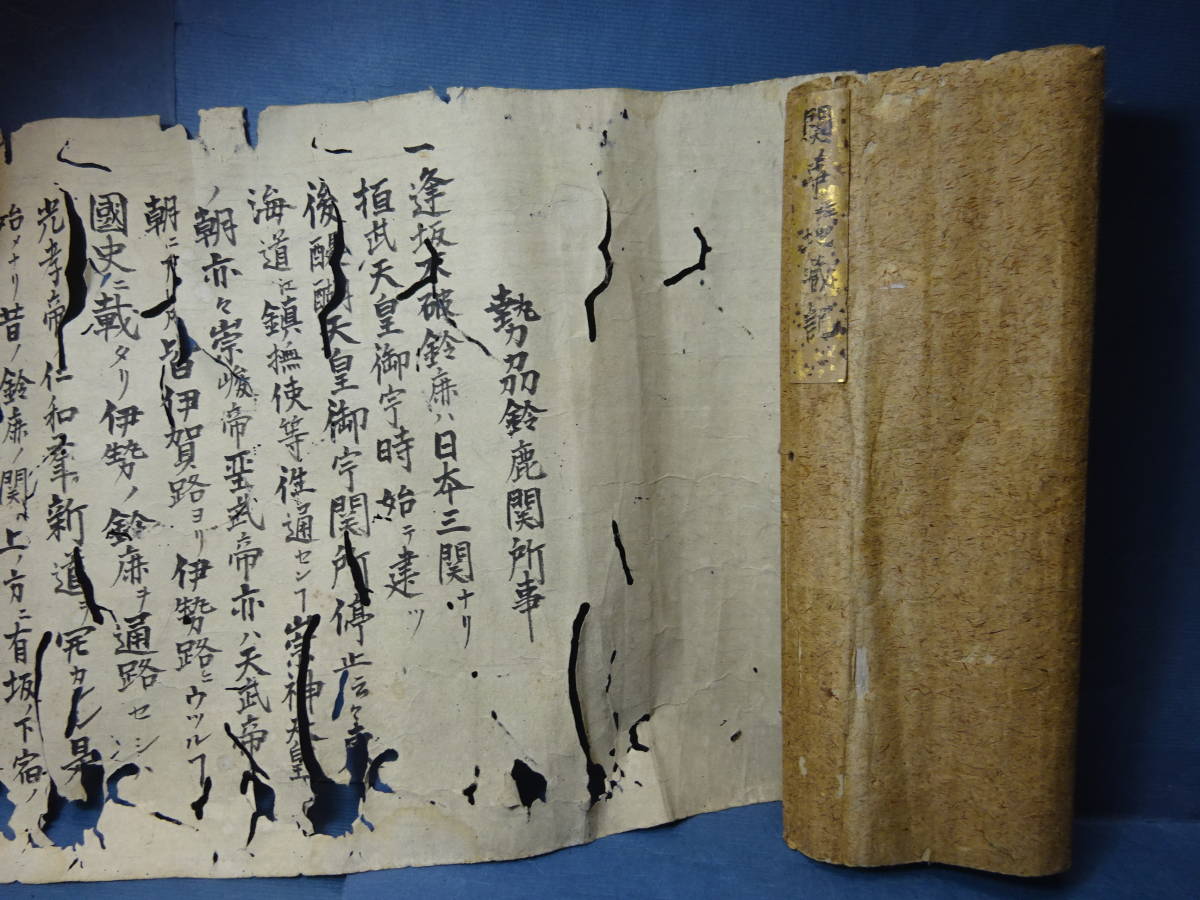 関 地蔵記
勢刕鈴鹿関所事
一逢坂不破鈴鹿ハ日本三関ナリ
桓武天皇御宇時始テ建ツ
後醍醐天皇御宇関所停止云々
海道江鎮撫使等往通センヿ崇神天皇
ノ朝亦々崇峻帝聖武帝亦ハ天武帝
朝ニ 皆伊賀路ヨリ伊勢路ヒウツルヿ
國史ニ載タリ伊勢ノ鈴鹿ヲ通路セシハ
光孝帝ノ仁和 新道ヲ 是
始メナリ昔ノ鈴鹿ノ関ハ上ノ方ニ有坂ノ下宿ノ